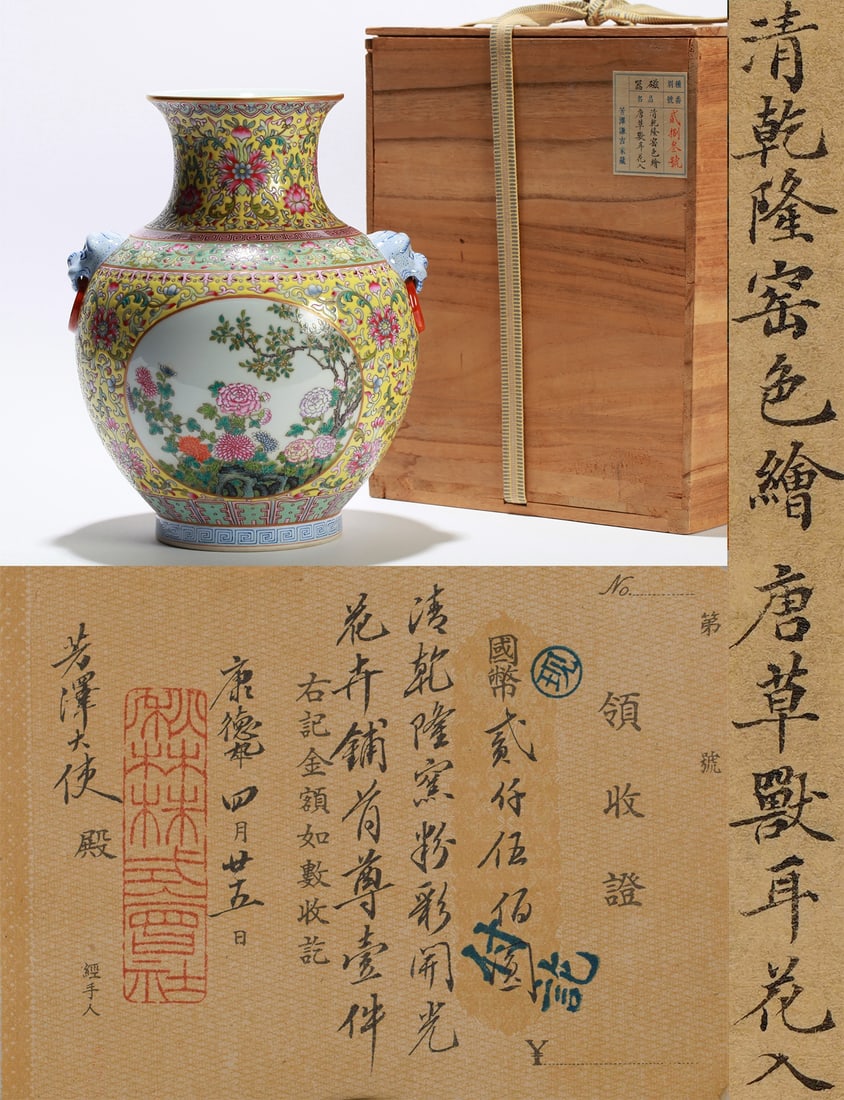 清乾隆窑色繪 唐草獸耳花入
種別 磁器
番號 貳捌叁號
品名 清乾隆窑色繪
唐草獸耳花入
芳澤謙吉家藏
No.
第 號
領收證
現
國幣貳仟伍佰圓
付訖
¥
清乾隆窯粉彩開光
花卉鋪首尊壹件
右記金額如數收訖
康德 四月廿五日
株式會社
芳澤大使 殿
經手人